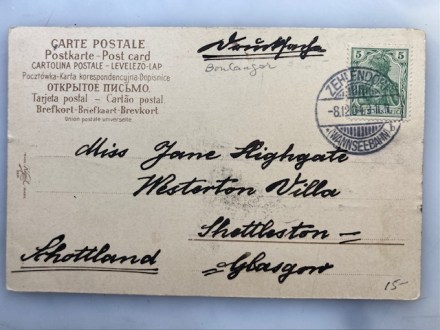 CARTE POSTALE
Postkarte-Post card
CARTOLINA POSTALE-LEVELEZŐ-LAP
Pocztówka-Karta korespondencyjna-Dopisnice
ОТКРЫТОЕ ПИСЬМО.
Tarjeta postal-Cartão postal.
Brefkort-Briefkaart-Brevkort
Union postale universelle
Drucksache
Boulanger
5 5
ZEHLENDORF
(WANNSEEBAHN)
Miss Jane Highgate
Westerton Villa
Shettleston
Schottland
Glasgow
15-